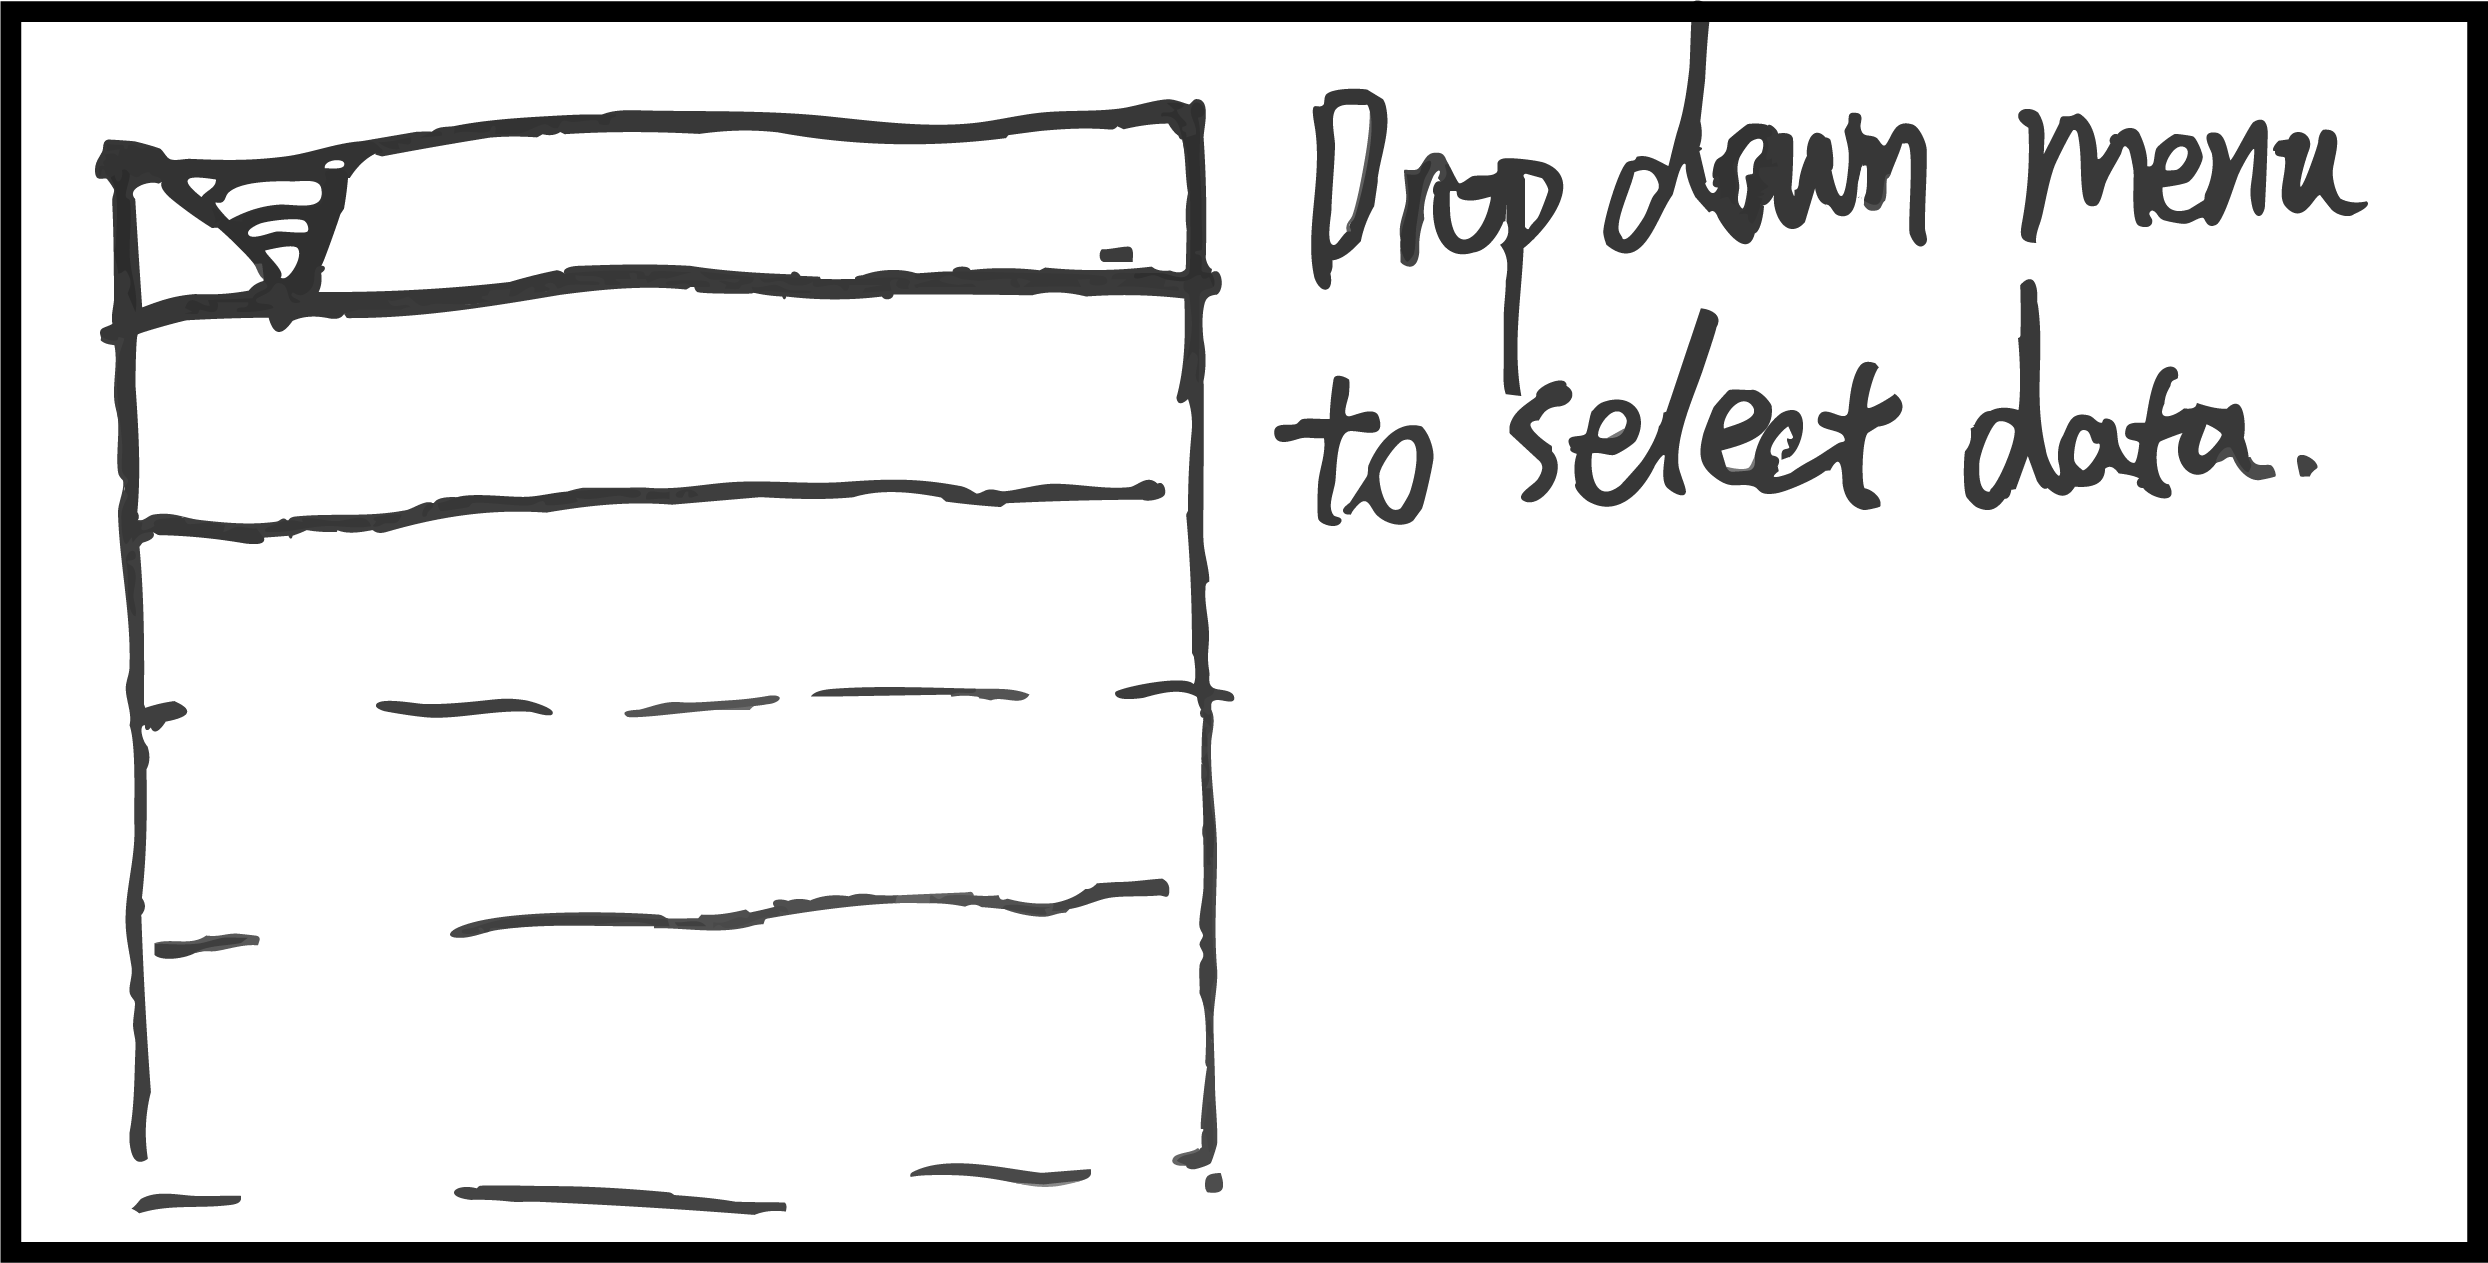 Drop down menu
to select data.